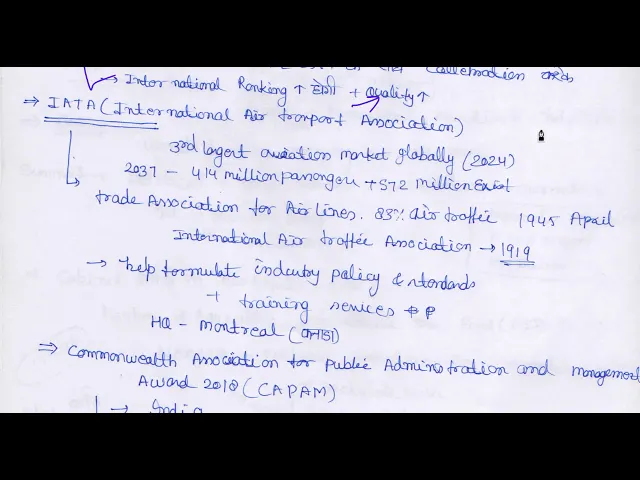 collaboration करके
→ International Ranking ↑ होगी + Quality ↑
⇒ IATA (International Air transport Association)
3rd largest aviation market globally (2024)
2037 - 414 million passengers + 572 million Exist
trade Association for Air Lines. 83% air traffic 1945 April
International Air traffic Association → 1919
→ help formulate industry policy & standards
+ training services
HQ - Montreal (कनाडा)
⇒ Commonwealth Association for Public Administration and management
Award 2018 (CAPAM)
→ India